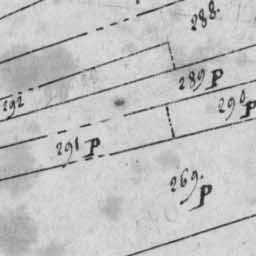 288.
289 P
292
290 P
291 P
269. P